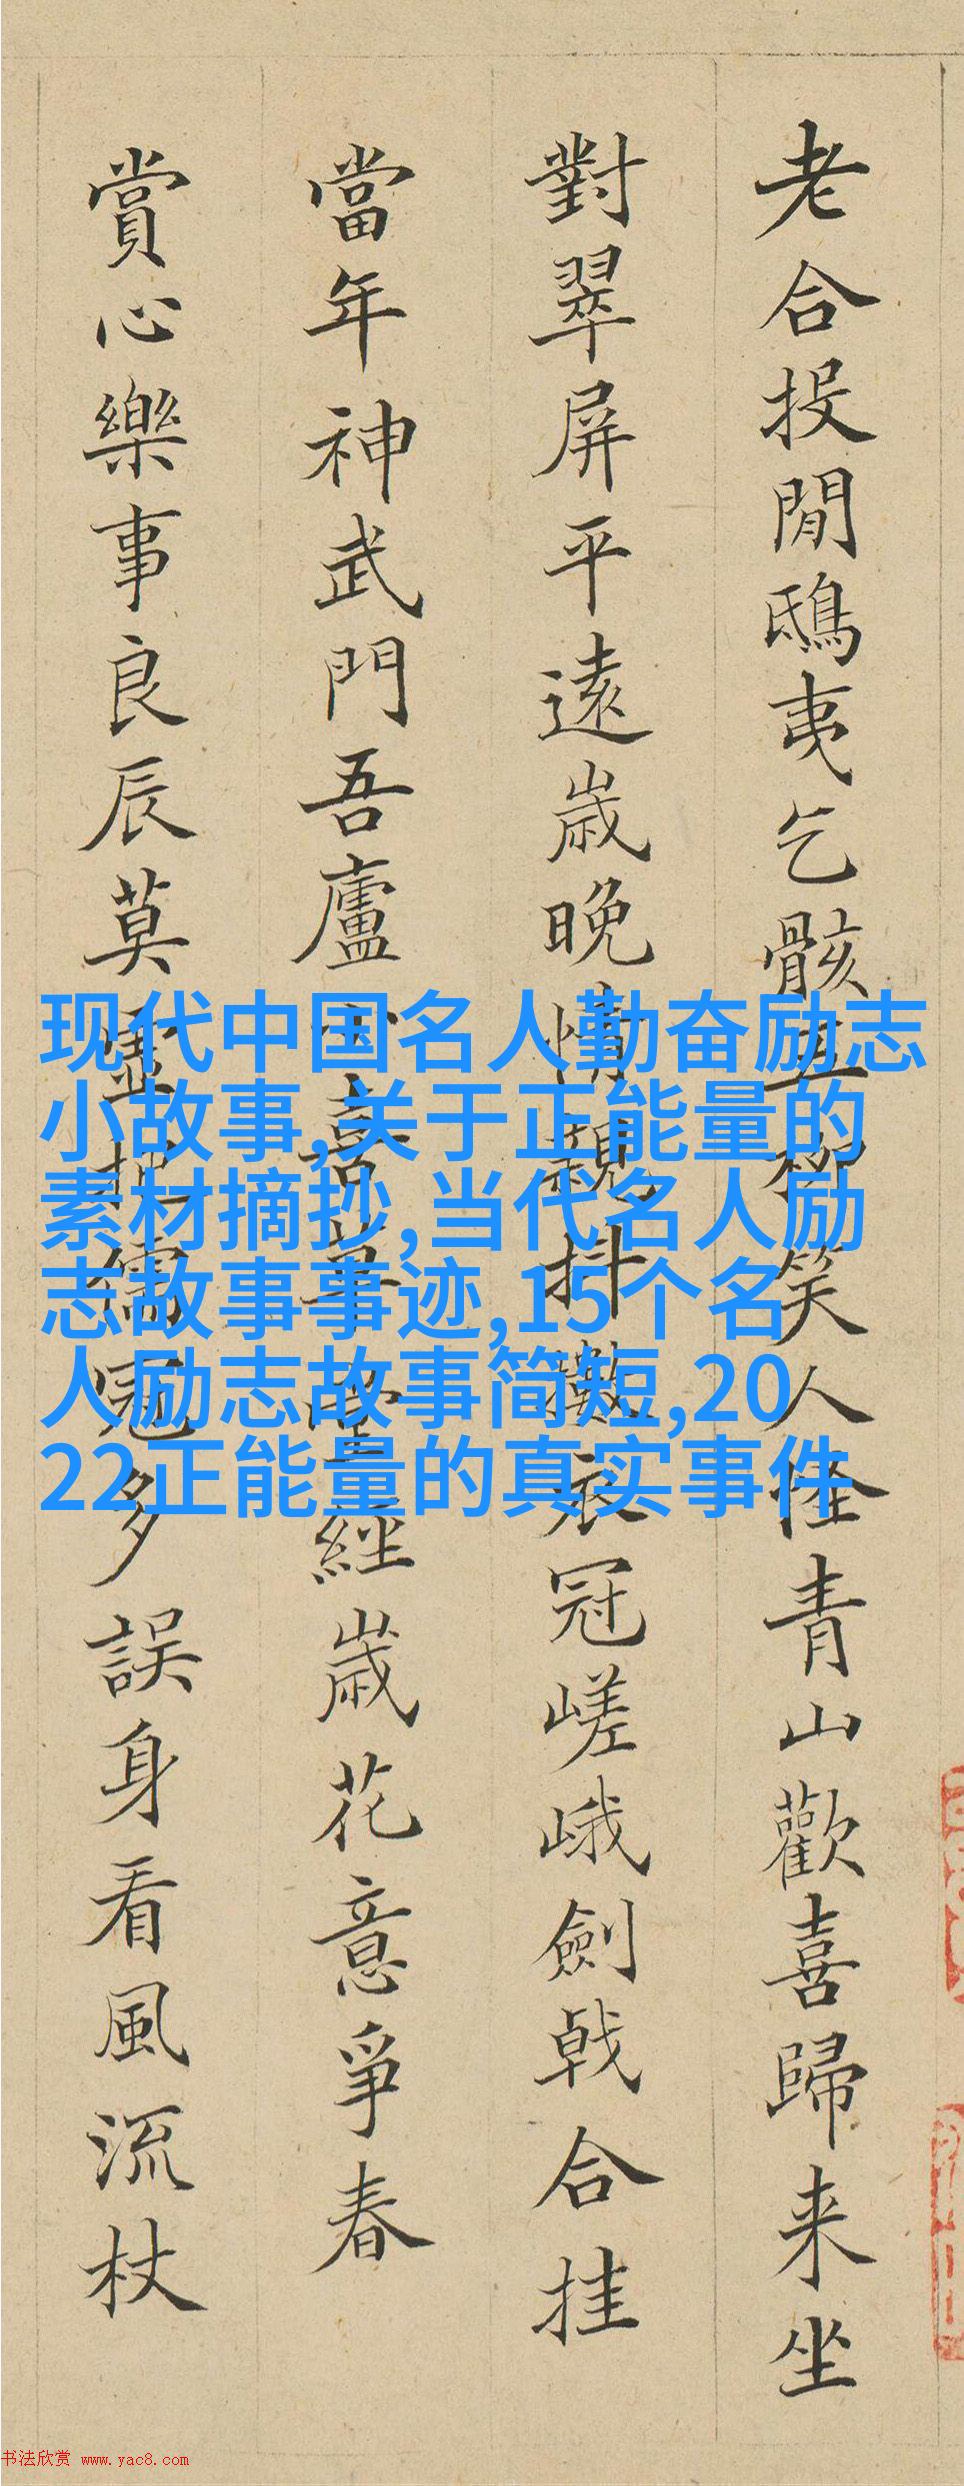 老合投閒鴟夷乞骸五柳笑人怪青山歡喜歸来坐
對翠屏平遠歲晚情親抖擻衣冠嵯峨劍戟合挂
當年神武門吾廬經歲花意爭春
賞心樂事良辰莫儒冠多誤身看風流杖
现代中国名人勤奋励志
小故事,关于正能量的
素材摘抄,当代名人励
志故事事迹,15个名
人励志故事简短,20
22正能量的真实事件
书法欣赏 www.yac8.com